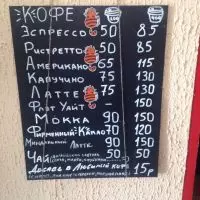 КОФЕ
Эспрессо 50 85
Ристретто 50 85
Американо 65 115
Капучино 75 130
Латте 75 130
Флэт Уайт - 150
Мокка 90 150
Фирменный 70 120
Миндальный Латте 90 150
Чай 50 50
Добавь в Любимый кофе
15р